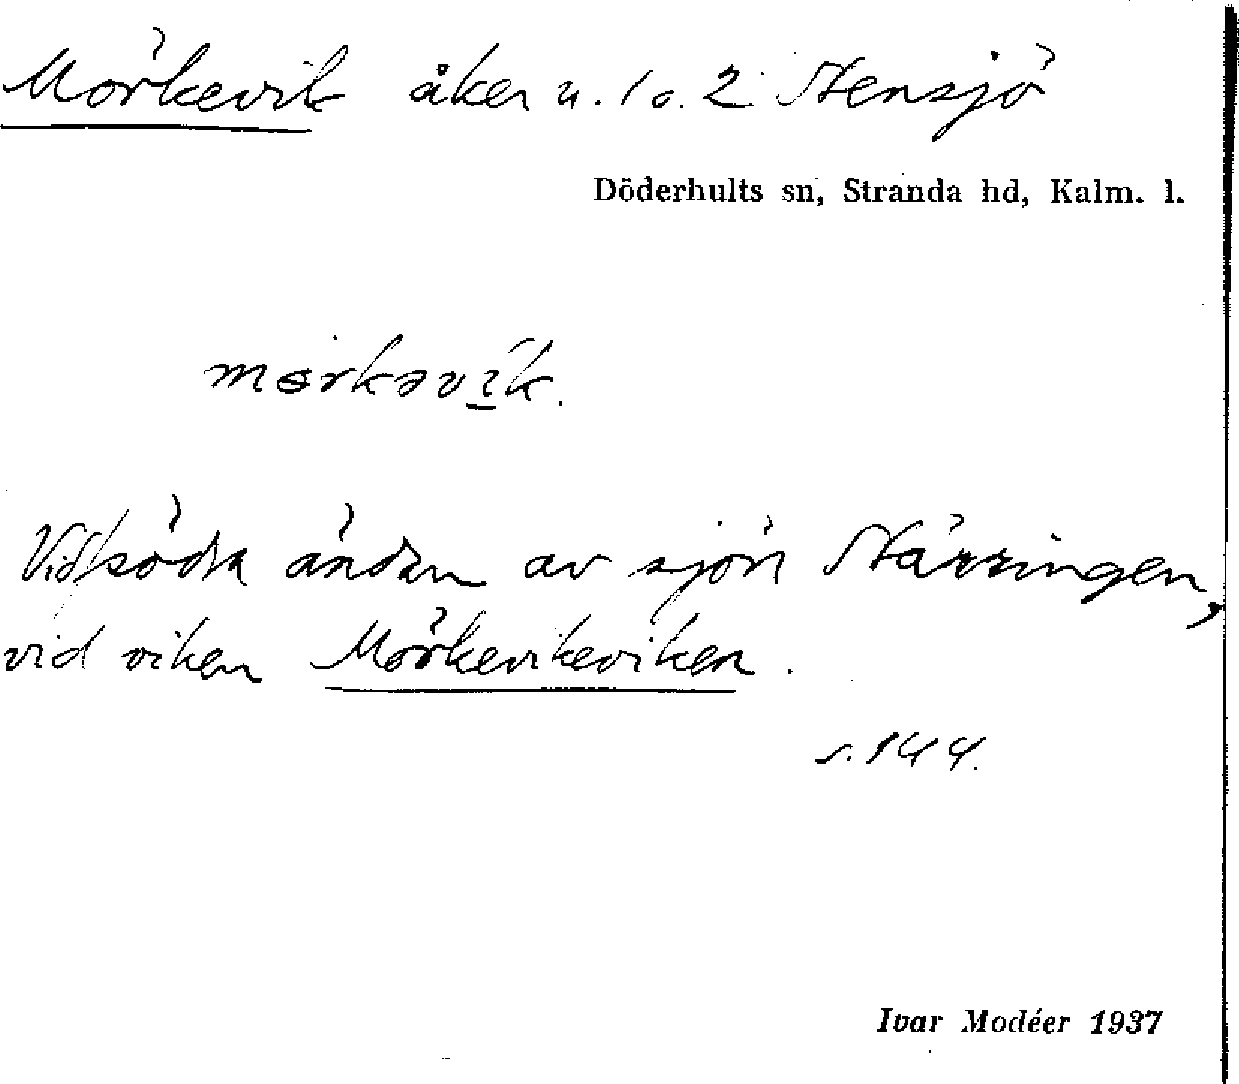 Mörkevik åker u. 1 o. 2 Stensjö
Döderhults sn, Stranda hd, Kalm. l.
mørkəvik.
Vid södra ändan av sjön Stärringen,
vid viken Mörkevikeviken.
s. 144.
Ivar Modéer 1937